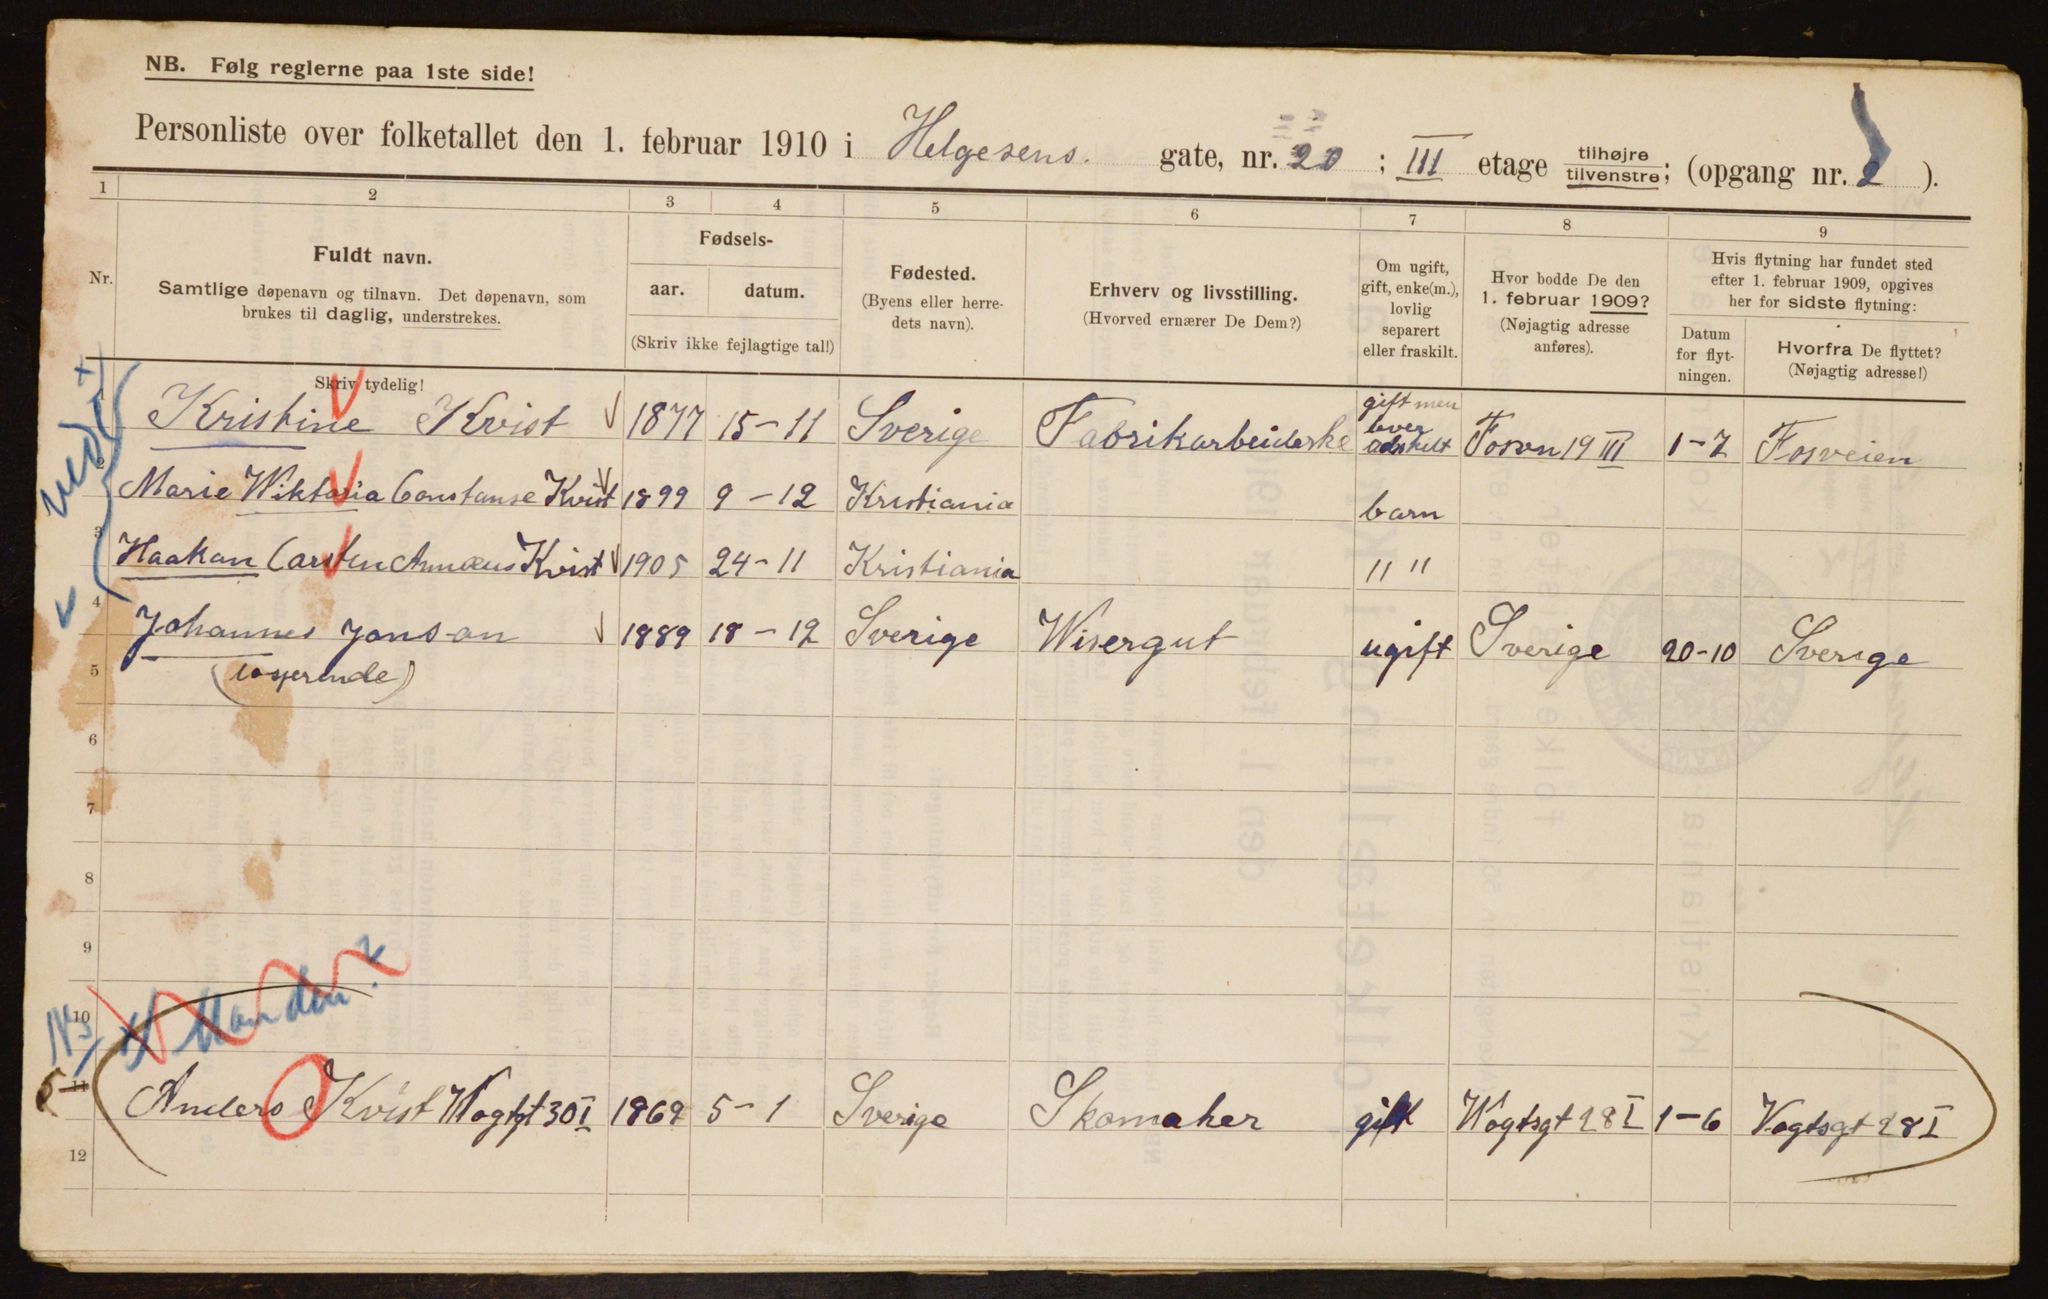 NB. Følg reglerne paa 1ste side!
Personliste over folketallet den 1. februar 1910 i Helgesens. gate, nr. 20 ; III etage tilhøjre tilvenstre; (opgang nr. 2 ).
1 2 3 4 5 6 7 8 9
Nr.
Fuldt navn.
Samtlige døpenavn og tilnavn. Det døpenavn, som
brukes til daglig, understrekes.
Skriv tydelig!
Fødsels-
aar. datum.
(Skriv ikke fejlagtige tal!)
Fødested.
(Byens eller herre-
dets navn).
Erhverv og livsstilling.
(Hvorved ernærer De Dem?)
Om ugift,
gift, enke(m.),
lovlig
separert
eller fraskilt.
Hvor bodde De den
1. februar 1909?
(Nøjagtig adresse
anføres).
Hvis flytning har fundet sted
efter 1. februar 1909, opgives
her for sidste flytning:
Datum
for flyt-
ningen.
Hvorfra De flyttet?
(Nøjagtig adresse!)
Kristine Kvist 1877 15-11 Sverige Fabrikarbeiderske gift men lever adskilt 19 III 1-7 Fosveien
2 Marie Wiktoria Constanse Kvist 1899 9-12 Kristiania barn
3 Haakan Carsten Kvist 1905 24-11 Kristiania " "
4 Johannes Jonson 1889 18-12 Sverige Wisergut ugift Sverige 20-10 Sverige
5 (losjerende)
6
7
8
9
10 Manden?
11 Anders Kvist Wogtgt 30 I 1869 5-1 Sverige Skomaker gift Wogtsgt 28 I 1-6 Vogtsgt 28 I
12